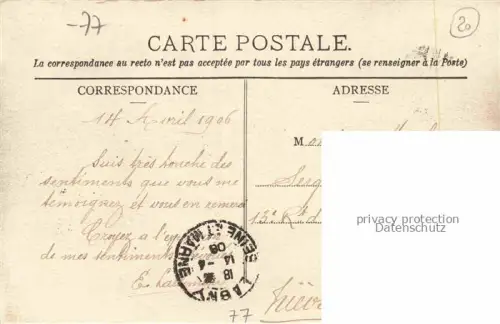 -77
20
CARTE POSTALE.
La correspondance au recto n'est pas acceptée par tous les pays étrangers (se renseigner à la Poste)
CORRESPONDANCE
ADRESSE
14 Avril 1906
Suis très touché des
sentiments que vous me
témoignez et vous en remerci
Croyez à l'ex
de mes sentiments
M
Serg
13e Rt d
Nièvre
LAGNY
18
14 -4
06
SEINE ET MARNE
77
privacy protection
Datenschutz